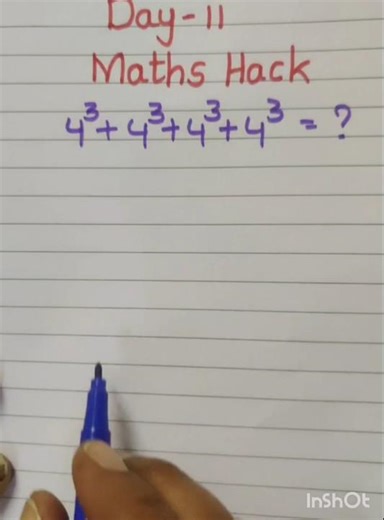 Day-11
Maths Hack
4³+4³+4³+4³ = ?
InShOt